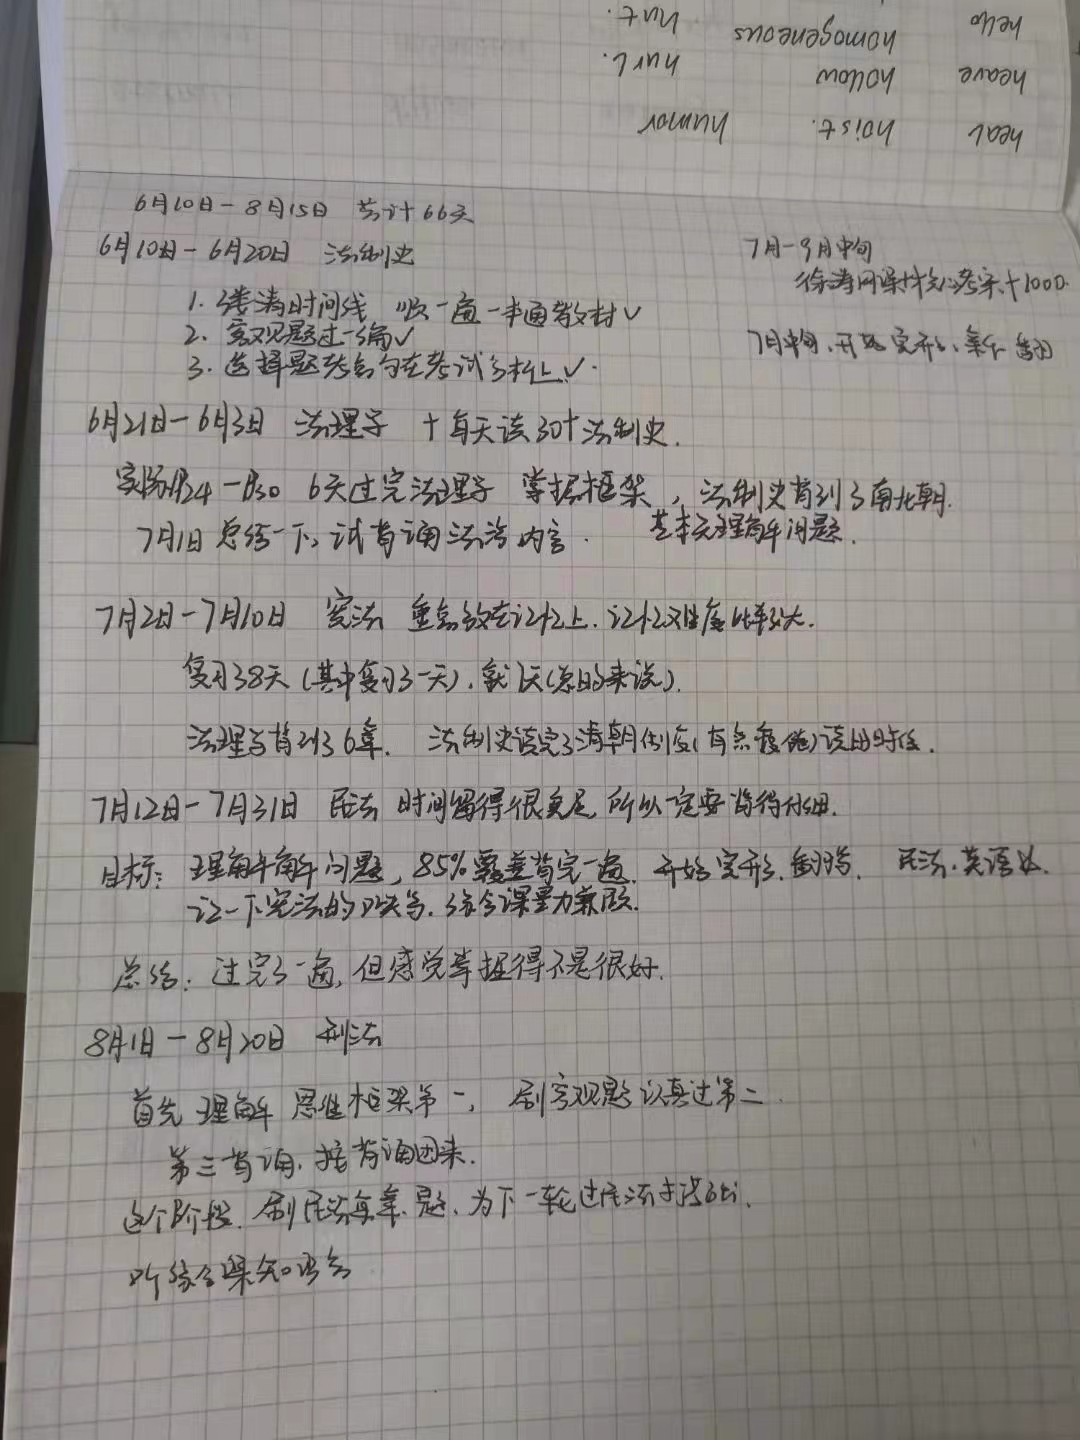 hello homogeneous hut.
heave hollow hurl.
heal hoist. humor
6月10日-8月15日 共计66天
6月10日-6月20日 法制史
1. 理清时间线 一遍 一本通教材√
2. 客观题过一遍√
3. 选择题考点勾在考试分析上√.
7月-9月中旬
徐涛网课+核心考案+1000
7月中旬.开始完形、新 翻
6月21日-6月3日 法理学 +每天读30+法制史.
实际 24-30 6天过完法理学 掌握框架,法制史背到了南北朝.
7月1日总结一下,试背诵法治内容. 基本无理解问题.
7月2日-7月10日 宪法 重点放在记忆上.记忆难度比较大.
复习38天(其中复习了一天).就 天(总的来说).
法理学背到了6章. 法制史读完了清朝制度(有点 )读的时候.
7月12日-7月31日 民法 时间留得很充足,所以一定要背得仔细.
目标:理解解问题,85%覆盖背完一遍.开始完形.翻译. 民法.英语
记一下宪法的 .综合课量力兼顾.
总结:过完了一遍,但感觉掌握得不是很好.
8月1日-8月20日 刑法
首先理解 思维框架第一, 刷客观题认真过第二.
第三背诵.接背诵 .
这个阶段.刷民法每章题.为下一轮过民法打基础.
听综合课知识点